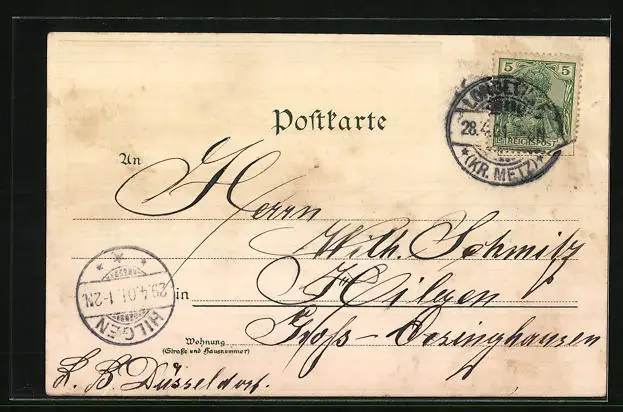 5 5
REICHSPOST
28.4.01
* (KR. METZ) *
Postkarte
An
Herrn
Wilh. Schmitz
in Hilgen
Wohnung
(Straße und Hausnummer)
L. B. Düsseldorf.
HILGEN
29.4.01. 1-2N.